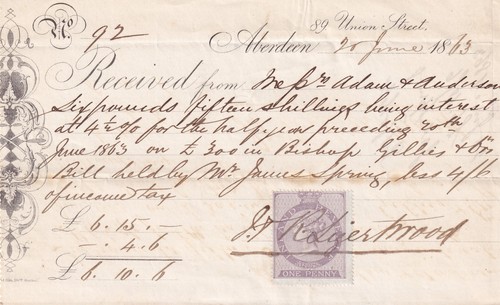 89 Union Street,
No. 92
Aberdeen 20 June 1863
Received from Messrs Adam & Anderson
Six pounds fifteen shillings being interest
at 4½ % for the half year preceding 20th
June 1863 on £300 in Bishop Gillies & Ors
Bill held by Mr James Spring, less 4/6
of income tax
£ 6. 15. —
—. 4. 6
£ 6. 10. 6
ONE PENNY